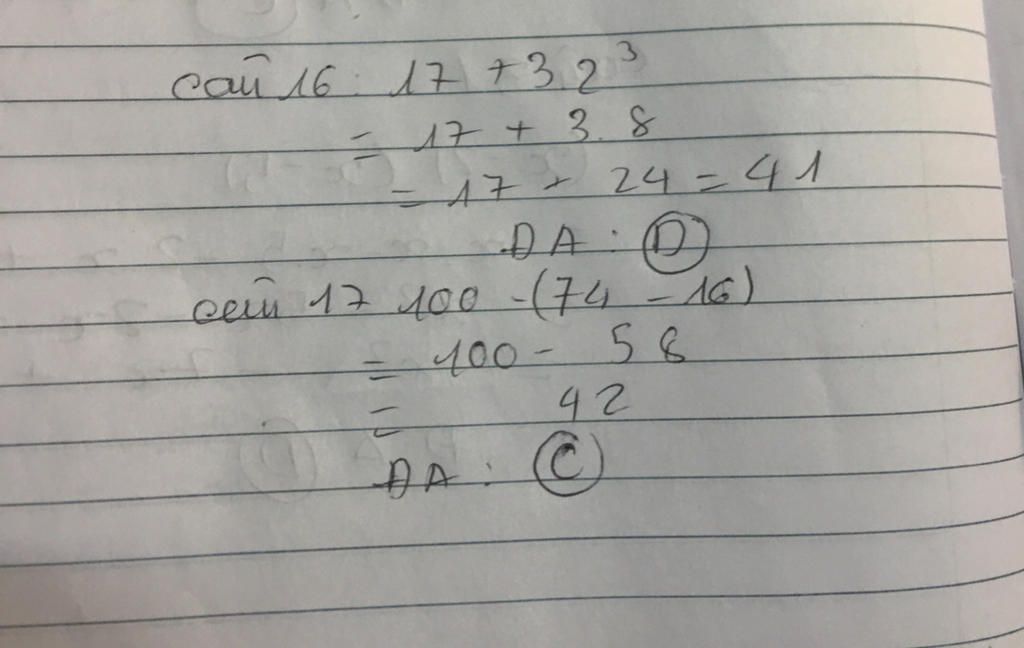 câu 16: 17 + 3.2³
= 17 + 3.8
= 17 + 24 = 41
ĐA: D
câu 17 100 - (74 - 16)
= 100 - 58
= 42
ĐA: C